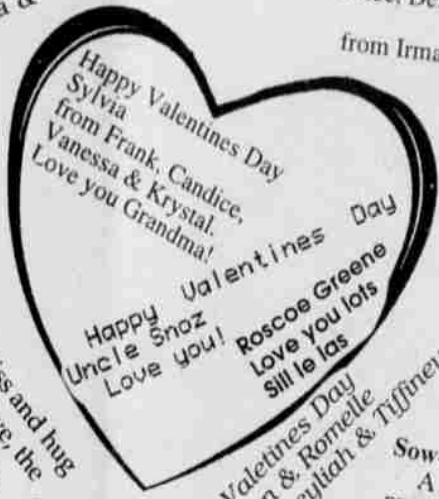 from Irma
Happy Valentines Day
Sylvia
from Frank, Candice,
Vanessa & Krystal.
Love you Grandma!
Happy Valentines Day
Uncle Snoz
Love you!
Roscoe Greene
Love you lots
Sill le las
and hug
the
Valetines Day
& Romelle
& Tiffiney
A